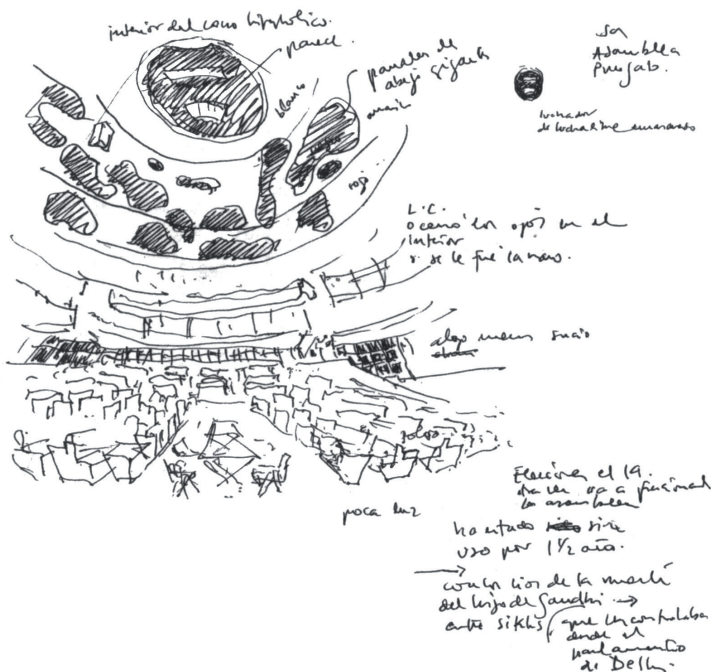 interior del cono hiperbólico.
pared.
paneles de
abajo gigante
amarillo
blanco
negro
rojo
Asamblea
Punjab.
luchador
de lucha libre
L.C.
o cerró los ojos en el
interior
o se le fue la mano.
algo menos sucio
polvo
poca luz
Elecciones el 19.
va a funcionar
la asamblea
ha estado sin
uso por 1 1/2 año.
→
con los líos de la muerte
del hijo de Gandhi →
entre sikhs que los controlaba
desde el
parlamento
de Delhi.